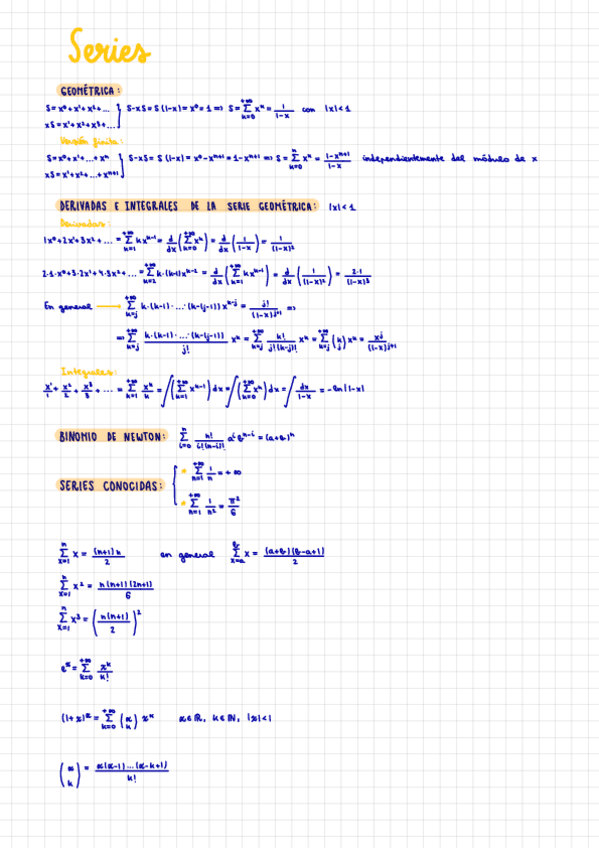 Series
GEOMÉTRICA:
S = x⁰ + x¹ + x² + ... } S - xS = S(1-x) = x⁰ = 1 => S = Σ_{k=0}^{+∞} xᵏ = 1/(1-x) con |x| < 1
xS = x¹ + x² + x³ + ...
Versión finita:
S = x⁰ + x¹ + ... + xⁿ } S - xS = S(1-x) = x⁰ - xⁿ⁺¹ = 1 - xⁿ⁺¹ => S = Σ_{k=0}^{n} xᵏ = (1-xⁿ⁺¹)/(1-x) independientemente del módulo de x
xS = x¹ + x² + ... + xⁿ⁺¹
DERIVADAS E INTEGRALES DE LA SERIE GEOMÉTRICA: |x| < 1
Derivadas:
1x⁰ + 2x¹ + 3x² + ... = Σ_{k=1}^{+∞} kxᵏ⁻¹ = d/dx (Σ_{k=0}^{+∞} xᵏ) = d/dx (1/(1-x)) = 1/(1-x)²
2·1·x⁰ + 3·2x¹ + 4·3x² + ... = Σ_{k=2}^{+∞} k·(k-1)xᵏ⁻² = d/dx (Σ_{k=1}^{+∞} kxᵏ⁻¹) = d/dx (1/(1-x)²) = 2·1/(1-x)³
En general → Σ_{k=j}^{+∞} k·(k-1)·...·(k-(j-1)) xᵏ⁻ʲ = j!/(1-x)ʲ⁺¹ =>
=> Σ_{k=j}^{+∞} k·(k-1)·...·(k-(j-1))/j! xᵏ = Σ_{k=j}^{+∞} k!/(j!(k-j)!) xᵏ = Σ_{k=j}^{+∞} (k j) xᵏ = xʲ/(1-x)ʲ⁺¹
Integrales:
x¹/1 + x²/2 + x³/3 + ... = Σ_{k=1}^{+∞} xᵏ/k = ∫(Σ_{k=1}^{+∞} xᵏ⁻¹) dx = ∫(Σ_{k=0}^{+∞} xᵏ) dx = ∫ dx/(1-x) = -ln|1-x|
BINOMIO DE NEWTON: Σ_{i=0}^{n} n!/(i!(n-i)!) aⁱ bⁿ⁻ⁱ = (a+b)ⁿ
SERIES CONOCIDAS: {
Σ_{n=1}^{+∞} 1/n = +∞
Σ_{n=1}^{+∞} 1/n² = π²/6
Σ_{x=1}^{n} x = (n+1)n/2 en general Σ_{x=a}^{b} x = (a+b)(b-a+1)/2
Σ_{x=1}^{n} x² = n(n+1)(2n+1)/6
Σ_{x=1}^{n} x³ = (n(n+1)/2)²
eˣ = Σ_{k=0}^{+∞} xᵏ/k!
(1+x)^α = Σ_{k=0}^{+∞} (α k) xᵏ α∈ℝ, k∈ℕ, |x|<1
(α k) = α(α-1)...(α-k+1)/k!